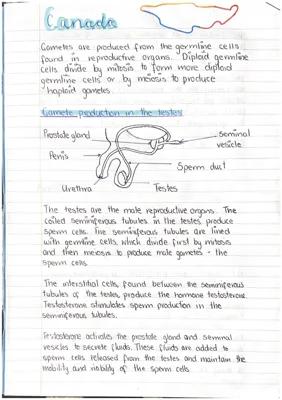 Canada
Gametes are produced from the germline cells
found in reproductive organs. Diploid germline
cells divide by mitosis to form more diploid
germline cells or by meiosis to produce
haploid gametes.
Gamete production in the testes
Prostate gland
seminal
vesicle
Penis
Sperm duct
Urethra
Testes
The testes are the male reproductive organs. The
coiled seminiferous tubules in the testes produce
sperm cells. The seminiferous tubules are lined
with germline cells, which divide first by mitosis
and then meiosis to produce male gametes - the
sperm cells.
The interstitial cells, found between the seminiferous
tubules of the testes, produce the hormone testosterone.
Testosterone stimulates sperm production in the
seminiferous tubules.
Testosterone activates the prostate gland and seminal
vesicles to secrete fluids. These fluids are added to
sperm cells released from the testes and maintain the
mobility and viability of the sperm cells